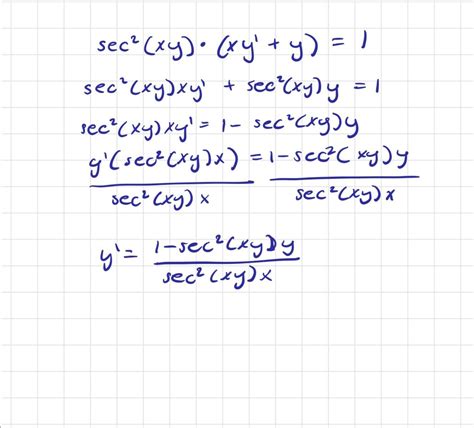 sec²(xy)·(xy' + y) = 1
sec²(xy)xy' + sec²(xy)y = 1
sec²(xy)xy' = 1 - sec²(xy)y
y'(sec²(xy)x) = 1-sec²(xy)y
sec²(xy)x sec²(xy)x
y' = 1-sec²(xy)y
sec²(xy)x